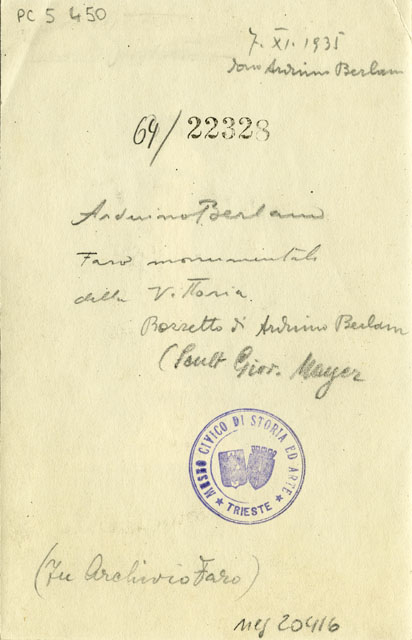 PC 5 450
7. XI. 1935
dono Arduino Berlam
64/22328
Arduino Berlam
Faro monumentale
della Vittoria.
Bozzetto di Arduino Berlam
(Scult Giov. Mayer
MUSEO CIVICO DI STORIA ED ARTE
★ TRIESTE ★
(In Archivio Faro)
neg 20416